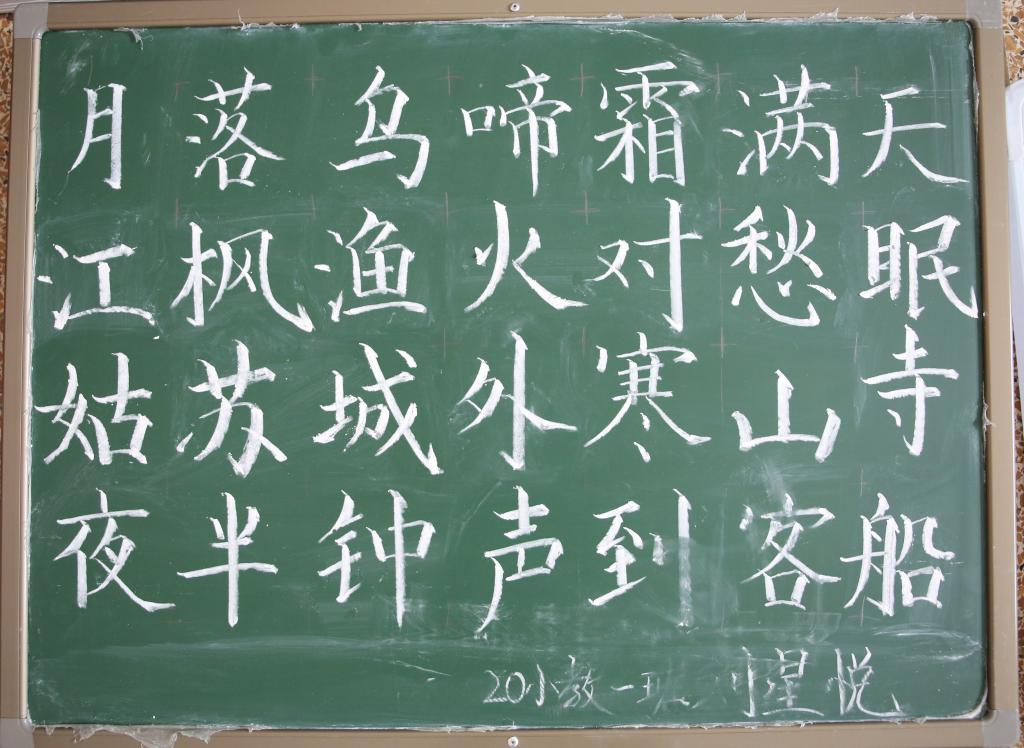 月落乌啼霜满天
江枫渔火对愁眠
姑苏城外寒山寺
夜半钟声到客船
20小教一班 悦